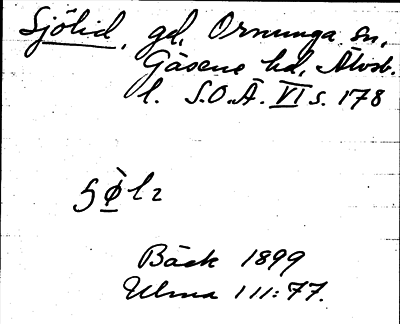 Sjölid, gd, Ornunga sn,
Gäsene hd, Älvsb.
l. S.O.Ä. VI s. 178
Bäck 1899
Ulma 111:77.